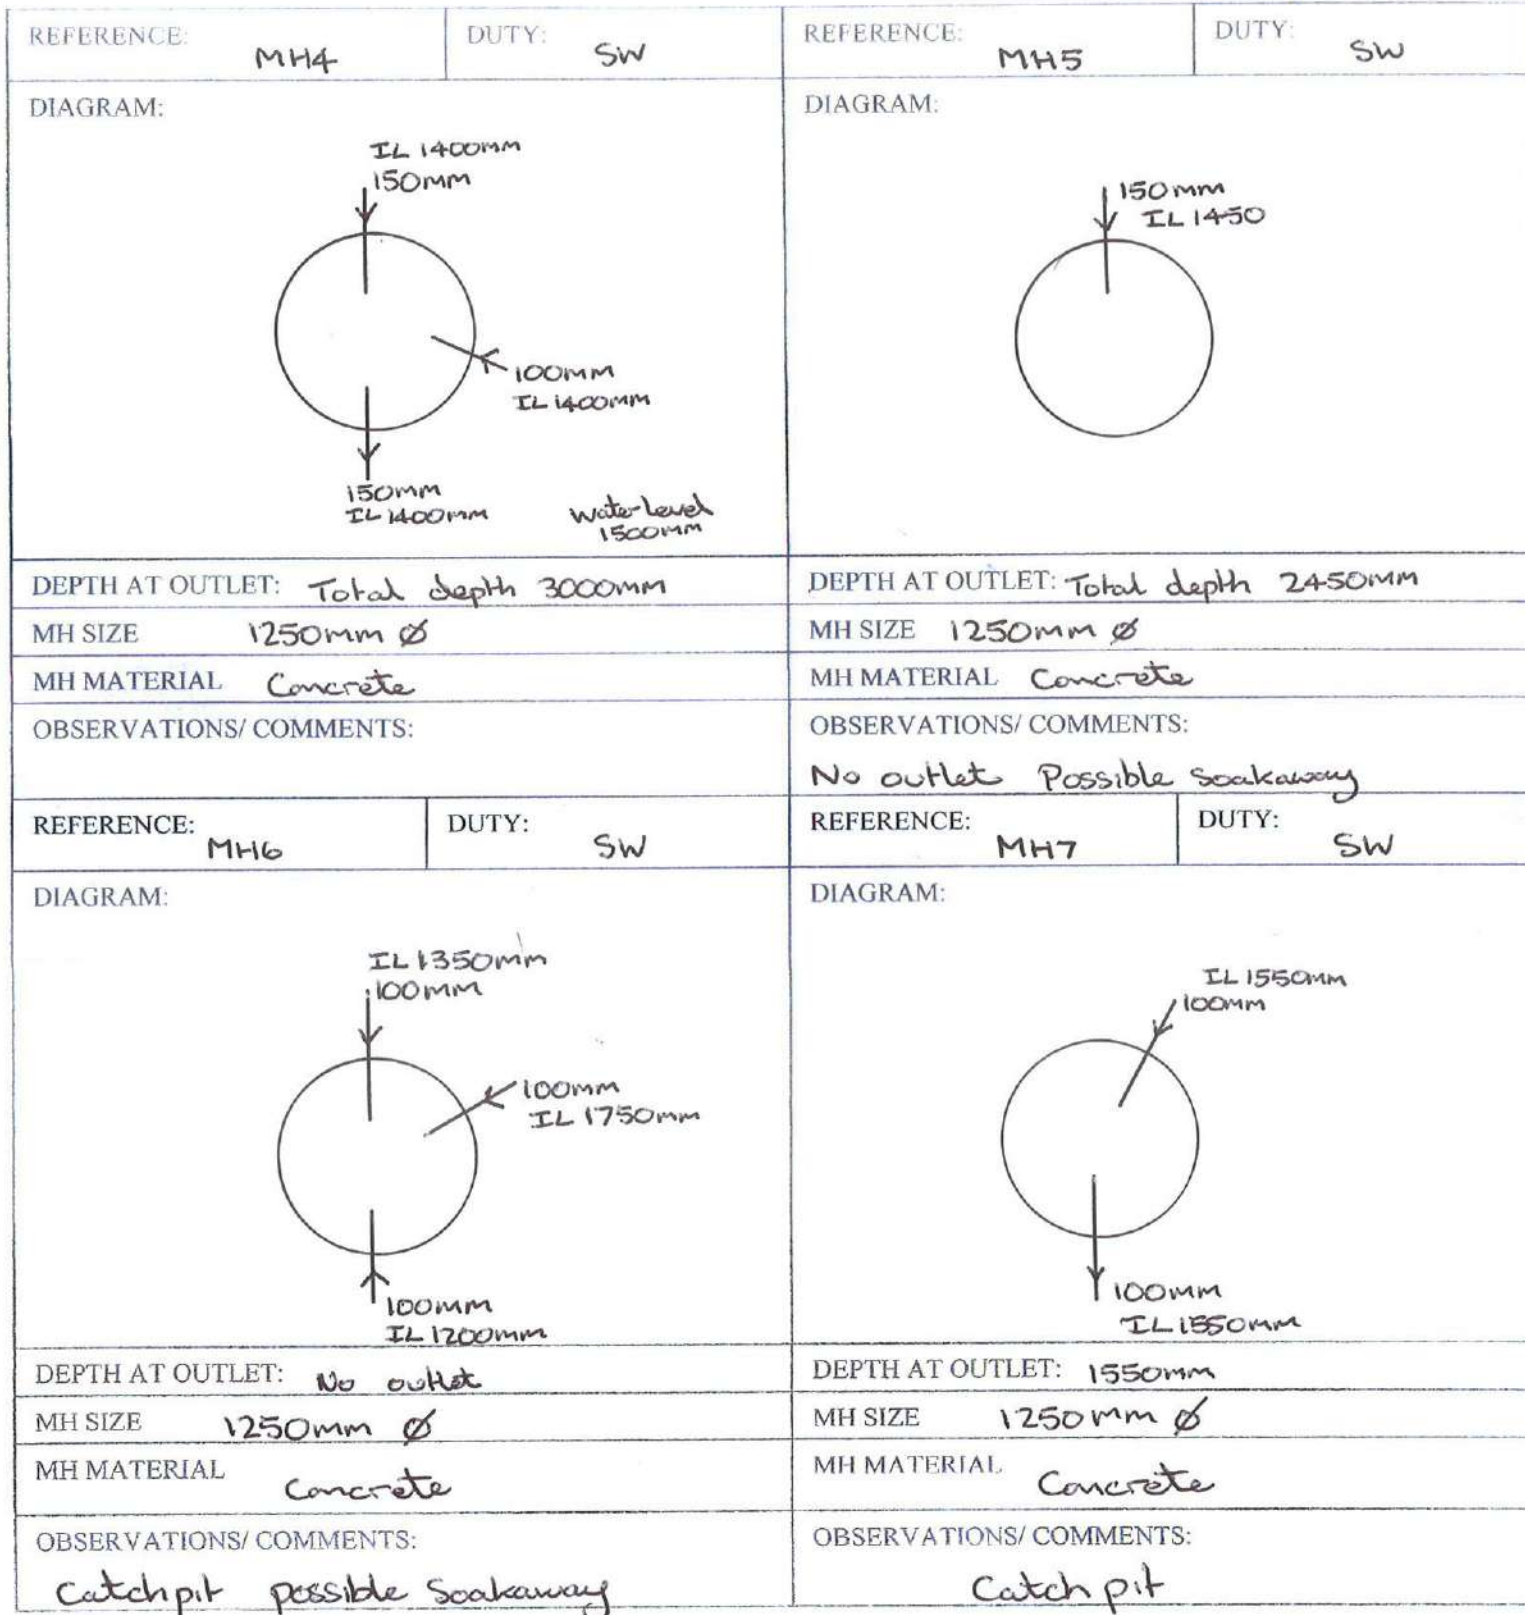 REFERENCE: MH4
DUTY: SW
DIAGRAM:
IL 1400mm
150mm
100mm
IL 1400mm
150mm
IL 1400mm
Water Level
1500mm
DEPTH AT OUTLET: Total depth 3000mm
MH SIZE 1250mm Ø
MH MATERIAL Concrete
OBSERVATIONS/ COMMENTS:
REFERENCE: MH5
DUTY: SW
DIAGRAM:
150mm
IL 1450
DEPTH AT OUTLET: Total depth 2450mm
MH SIZE 1250mm Ø
MH MATERIAL Concrete
OBSERVATIONS/ COMMENTS:
No outlet Possible soakaway
REFERENCE: MH6
DUTY: SW
DIAGRAM:
IL 1350mm
100mm
100mm
IL 1750mm
100mm
IL 1200mm
DEPTH AT OUTLET: No outlet
MH SIZE 1250mm Ø
MH MATERIAL Concrete
OBSERVATIONS/ COMMENTS:
Catchpit possible Soakaway
REFERENCE: MH7
DUTY: SW
DIAGRAM:
IL 1550mm
100mm
100mm
IL 1550mm
DEPTH AT OUTLET: 1550mm
MH SIZE 1250mm Ø
MH MATERIAL Concrete
OBSERVATIONS/ COMMENTS:
Catch pit